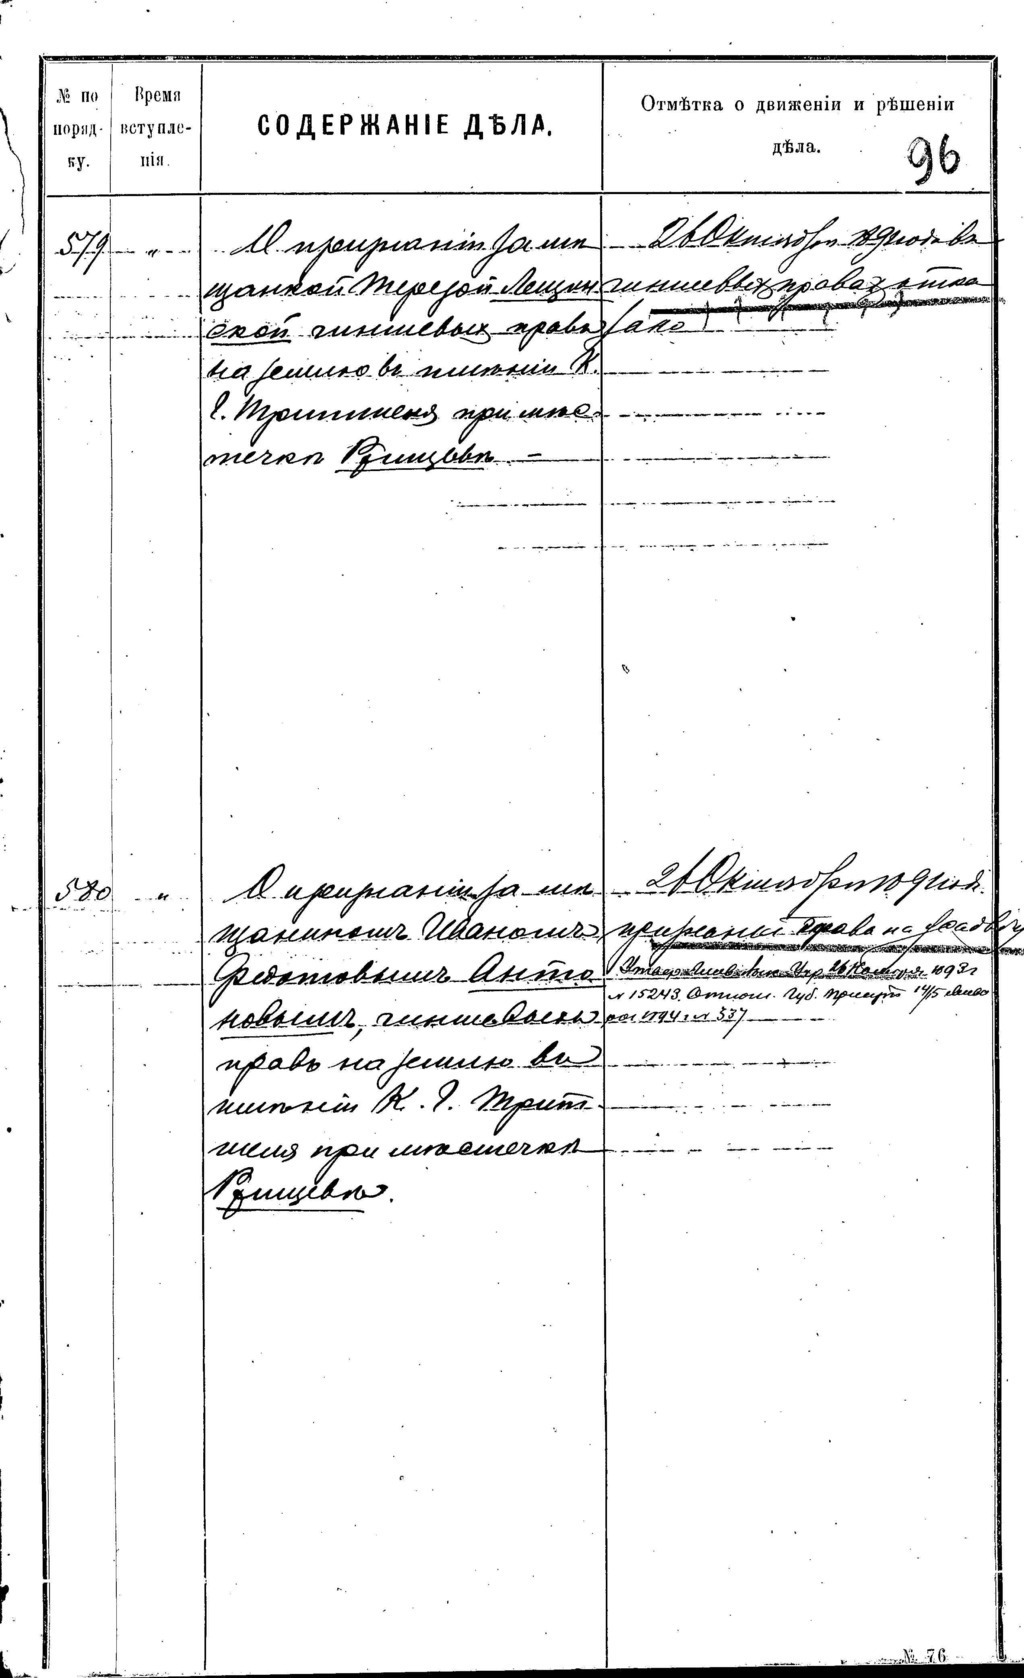 № по
поряд-
ку.
Время
вступле-
нія.
СОДЕРЖАНІЕ ДѢЛА.
Отмѣтка о движеніи и рѣшеніи
дѣла.
96
579 "
О признаніи за мѣ
щанкой Терезой Лещин
ской чиншевыхъ правъ
на землю въ имѣніи К.
Г. Тритшеля при мѣс-
течкѣ Ржищевѣ
26 Октября въ
чиншевыхъ правахъ отка
зано
580 "
О признаніи за мѣ
щаниномъ Иваномъ
Федотовымъ Анто
новымъ, чиншевыхъ
правъ на землю въ
имѣніи К. Г. Трит
шеля при мѣстечкѣ
Ржищевѣ.
26 Октября
признаны права на усадьбу
1893 г
№ 15243. Относ. Губ. Присут 14/5
1894 г № 537
№ 76